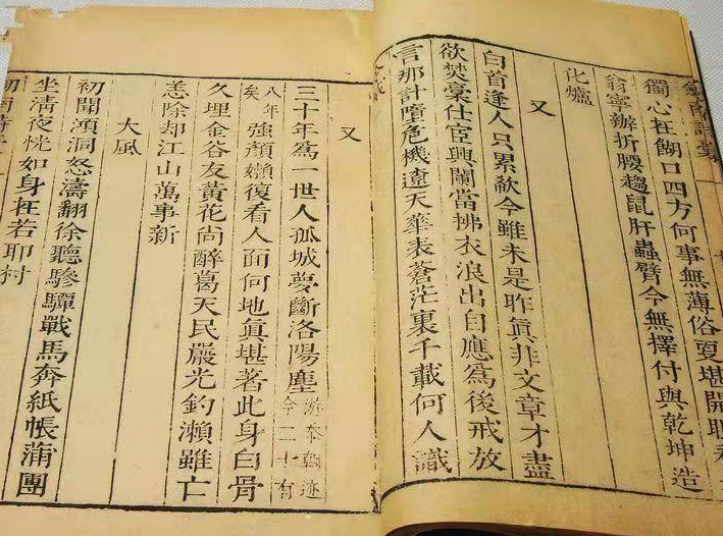 獨心在餬口四方何事無薄俗更堪開
翁寧辦折腰趨鼠肝蟲臂今無擇付與乾坤造
化爐
又
白首逢人只累欷今雖未是昨眞非文章才盡
欲焚稾仕宦興闌當拂衣浪出自應爲後戒放
言那計墮危機遼天華表蒼茫裏千載何人識
又
三十年爲一世人孤城夢斷洛陽塵游奉朝迹今二十有
八年矣強顏嬾復看人面何地眞堪著此身白骨
久埋金谷友黃花尚醉葛天民嚴光釣瀨雖亡
恙除却江山萬事新
大風
初聞澒洞怒濤翻徐聽驂驔戰馬奔紙帳蒲團
坐淸夜恍如身在若耶村